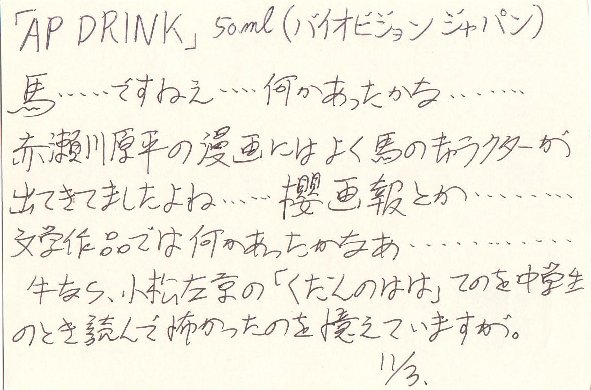 「AP DRINK」 50ml (バイオビジョン ジャパン)
馬……ですねえ…‥何かあったかな………
赤瀬川原平の漫画にはよく馬のキャラクターが
出てきてましたよね……櫻画報とか………
文学作品では何かあったかなぁ……………
牛なら、小松左京の「くだんのはは」てのを中学生
のとき読んで怖かったのを憶えていますが。
11/3.